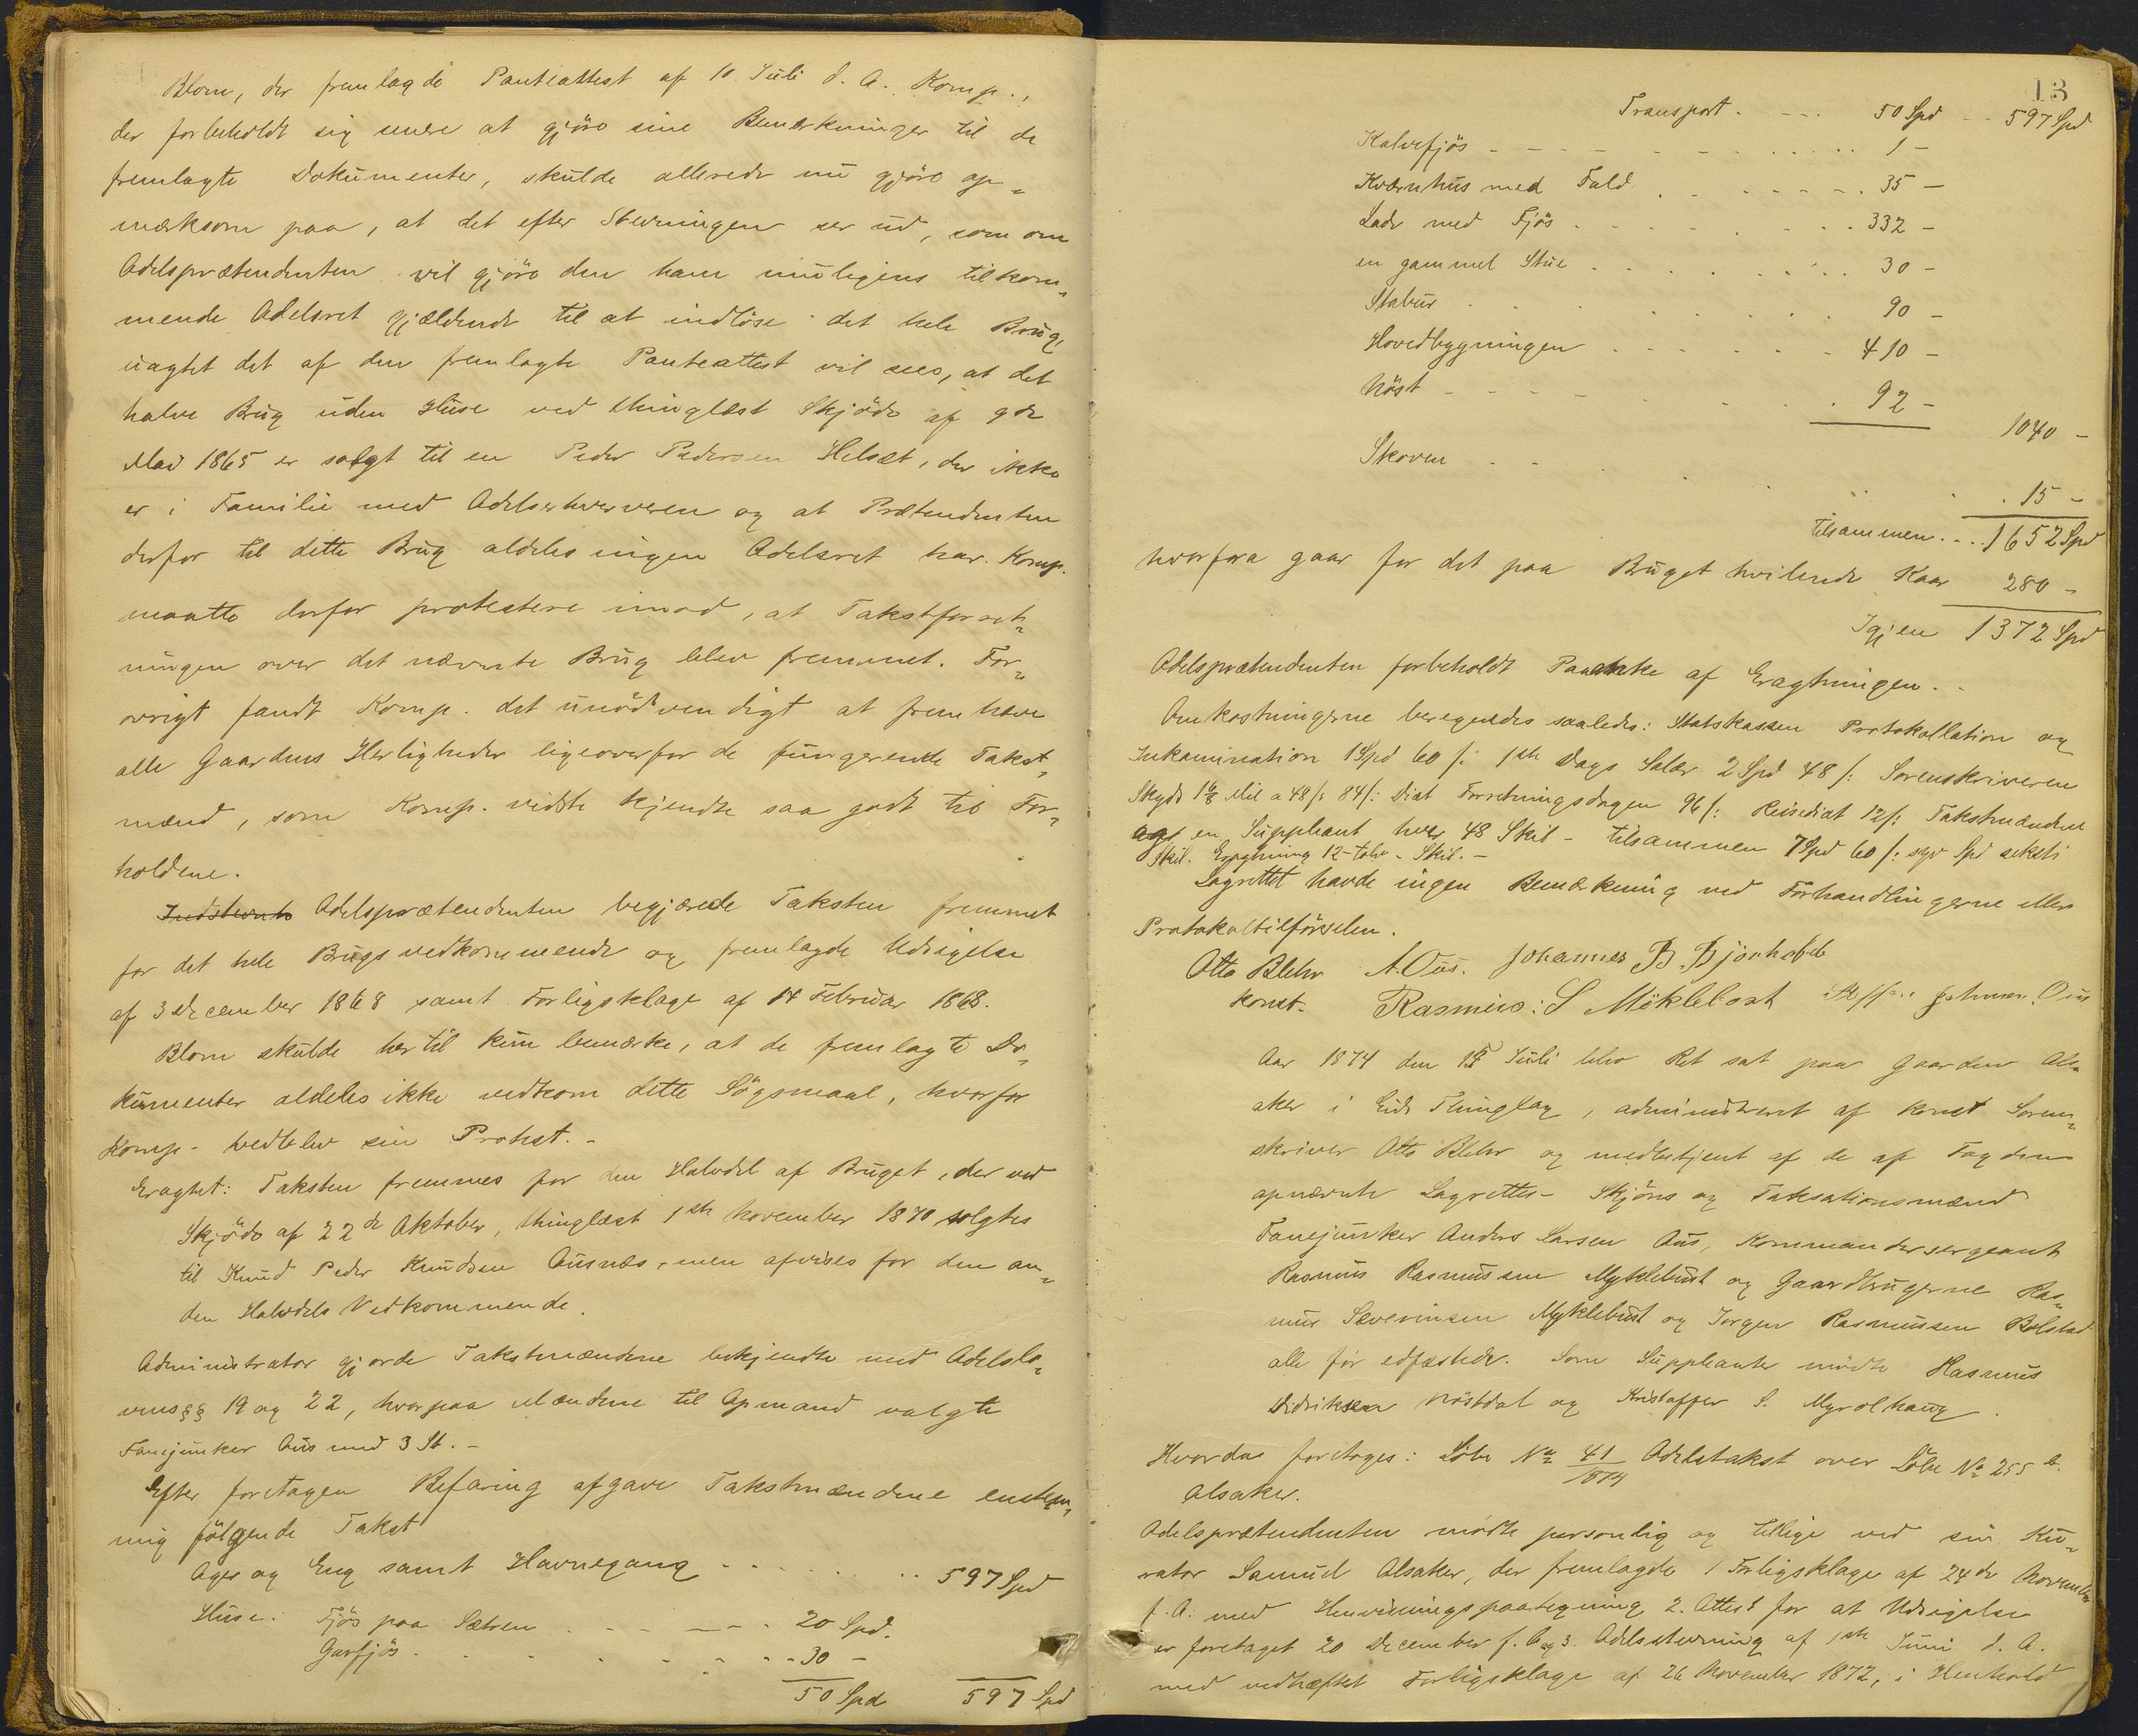 Blom, der fremlagde Panteattest af 10 Juli d. A. Komp.,
der forbeholdt sig senere at gjöre sine Bemærkninger til de
fremlagte Dokumenter, skulde allerede nu gjöre op-
mærksom paa, at det efter Stevningen ser ud, som om
Odelsprætendenten vil gjöre den ham muligens tilkom-
mende Odelsret gjældende til at indlöse det hele Brug,
uagtet det af den fremlagte Panteattest vil sees, at det
halve Brug uden Huse ved thinglæst Skjöde af 9de
Mai 1865 er solgt til en Peder Pedersen Helset, der ikke
er i Familie med Odelserhververen og at Prætendenten
derfor til dette Brug aldeles ingen Odelsret har. Komp.
maatte derfor protestere imod, at Takstforret-
ningen over det nævnte Brug blev fremmet. For-
övrigt fandt Komp. det unödvendigt at fremhæve
alle Gaardens Herligheder ligeoverfor de fungerende Takst-
mænd, som Komp. vidste kjendte saa godt til For-
holdene.
Indstevnte Odelsprætendenten begjærede Taksten fremmet
for det hele Brugs vedkommende og fremlagde Udsigelse
af 3 December 1868 samt Forligsklage af 14 Februar 1868.
Blom skulde hertil kun bemærke, at de fremlagte Do-
kumenter aldeles ikke vedkom dette Sögsmaal, hvorfor
Komp. vedblev sin Protest. -
Eragtet: Taksten fremmes for den Halvdel af Bruget, der ved
Skjöde af 22de Oktober, thinglæst 1ste November 1870 solgtes
til Knud Peder Knudsen Ausnæs, men afvises for den an-
den Halvdels Vedkommende.
Administrator gjorde Takstmændene bekjendte med Odelslo-
vens §§ 19 og 22, hvorpaa Mændene til Opmand valgte
Fanejunker Aus med 3 St. -
Efter foretagen Befaring afgave Takstmændene enstem-
mig fölgende Takst
Ager og Eng samt Havnegang . . . . . . 597 Spd
Huse: Fjös paa Sætren . . . . . 20 Spd.
Garfjös . . . . . . . 30 -
50 Spd 597 Spd
13
Transport . - - - 50 Spd - - 597 Spd
Kalvefjös - - - - - - - . . . . . 1 -
Kværnhus med Fald . . . . . . . 35 -
Lade med Fjös . . . . . . . . . 332 -
en gammel Stue . . . . . . . . 30 -
Stabur . . . . . . . . 90 -
Hovedbygningen . . . . . . 410 -
Nöst - - - - - . . . 92 -
1040 -
Skoven . . . . . . . 15 -
tilsammen . . . 1652 Spd
hvorfra gaar for det paa Bruget hvilende Kaar 280 -
Igjen 1372 Spd
Odelsprætendenten forbeholdt Paaanke af Eragtningen. .
Omkostningerne beregnedes saaledes: Statskassen Protokollation og
Inkamination 1 Spd 60 s: 1ste Dags Salær 2 Spd 48 s: Sorenskriveren
Skyds 1 6/8 Mil a 48 s: 84 s: Diæt Forretningsdagen 96 s: Reisediæt 12 s: Takstmændene
og en Suppleant hver 48 Skil - tilsammen 7 Spd 60 s: syv Spd seksti
Skil. Eragtning 12 - tolv - Skil. -
Lagrettet havde ingen Bemærkning ved Forhandlingerne eller
Protokoltilförselen.
Otto Blehr A. Ous. Johannes B. Bjørhovde
konst. Rasmus: S Möklebost
Aar 1874 den 15 Juli blev Ret sat paa Gaarden Al-
aker i Eids Thinglag, administreret af konst Soren-
skriver Otto Blehr og medbetjent af de af Fogden
opnævnte Lagrettes- Skjöns og Taksationsmænd
Fanejunker Anders Larsen Aus, Kommandersergeant
Rasmus Rasmussen Myklebust og Gaardbrugerne Ras-
mus Severinsen Myklebust og Jörgen Rasmussen Bolstad
alle för edfæstede. Som Suppleanter mödte Rasmus
Didriksen Nöstdal og Kristoffer S. Myrolhaug.
Hvorda foretoges: Löbe No 41/1874 Odelstakst over Löbe No 255 b.
Alsaker.
Odelsprætendenten mödte personlig og tillige ved sin Ku-
rator Samuel Alsaker, der fremlagde 1 Forligsklage af 24de November
f. A. med Henvisningspaategning 2. Attest for at Udsigelse
er foretaget 20 December f. A. og 3. Odelsstevning af 1ste Juni d. A.
med vedhæftet Forligsklage af 26 November 1872, i Henhold